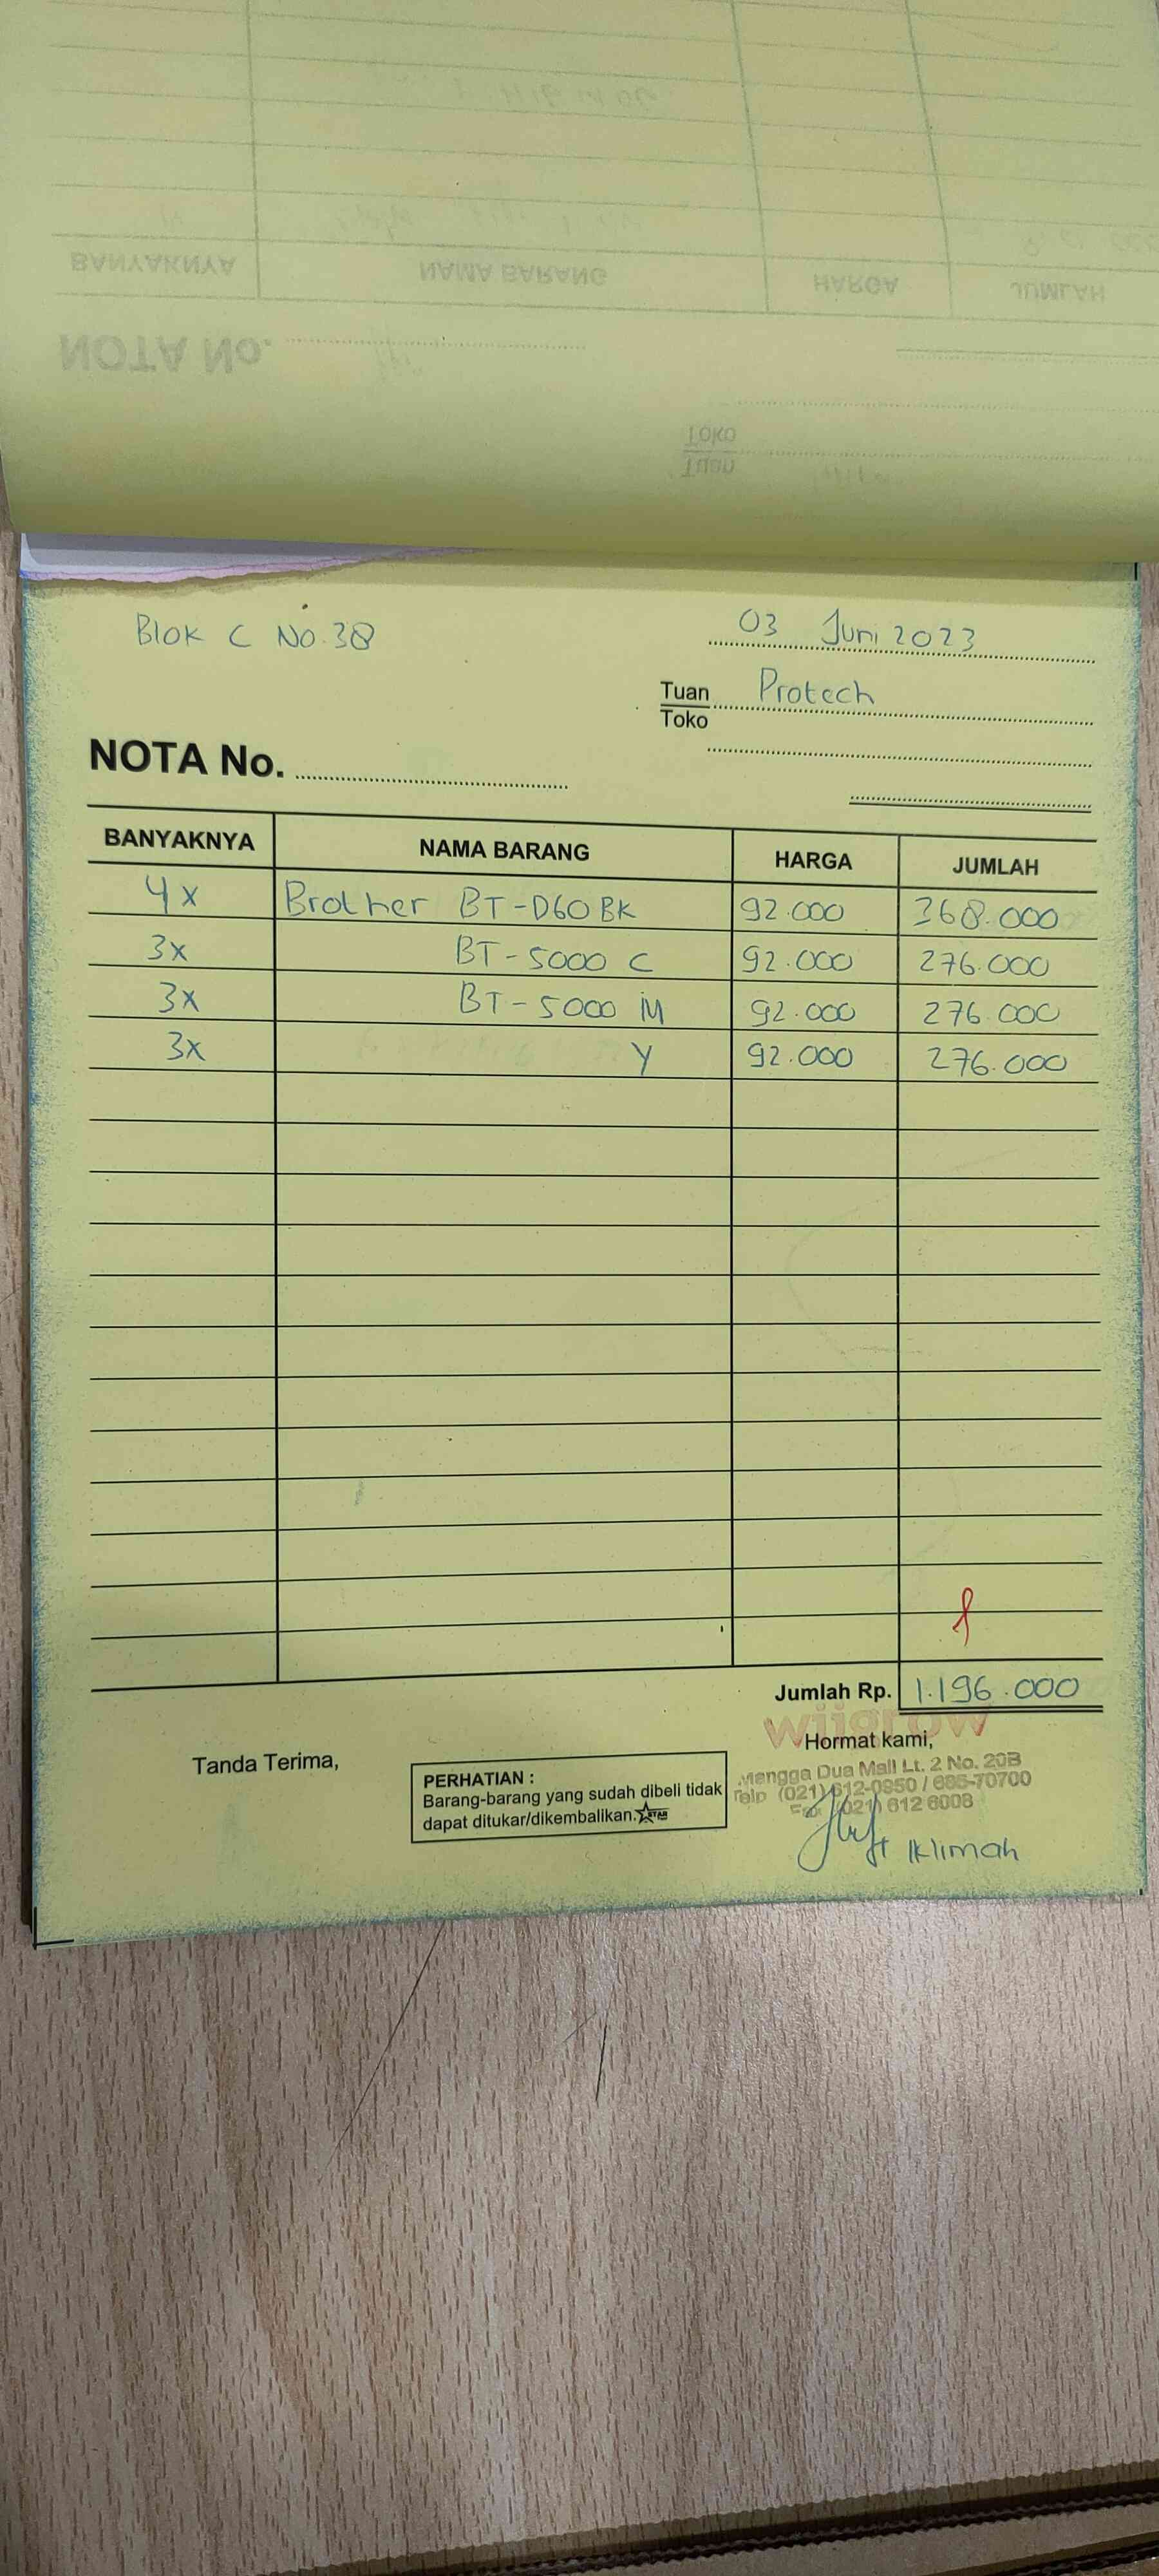 BANYAKNYA NAMA BARANG HARGA JUMLAH
NOTA No.
Toko
Tuan
Blok C No.38
03 Juni 2023
Tuan Protech
Toko
NOTA No.
BANYAKNYA NAMA BARANG HARGA JUMLAH
4x Brother BT-D60BK 92.000 368.000
3x BT-5000 C 92.000 276.000
3x BT-5000 M 92.000 276.000
3x Y 92.000 276.000
Jumlah Rp. 1.196.000
wijgrow
Tanda Terima,
Hormat kami,
PERHATIAN :
Barang-barang yang sudah dibeli tidak
dapat ditukar/dikembalikan. STAR
Mangga Dua Mall Lt. 2 No. 20B
Telp (021) 612-0950 / 685-70700
Fax (021) 612 6008
Iklimah